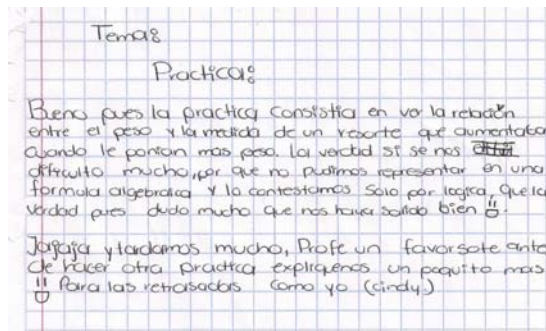 Tema:
Practica:
Beno pues la practica consistia en ver la relación
entre el peso y la medida de un resorte que aumentaba
cuando le ponian mas peso. La verdad si se nos
dificulto mucho, por que no pudimos representar en una
formula algebraica y la contestamos solo por logica, que la
verdad pues dudo mucho que nos haya salido bien
Jajajaja y tardamos mucho, Profe un favorsote ante
de hacer otra practica expliquenos un poquito mas
Para las retrasadas como yo (cindy)